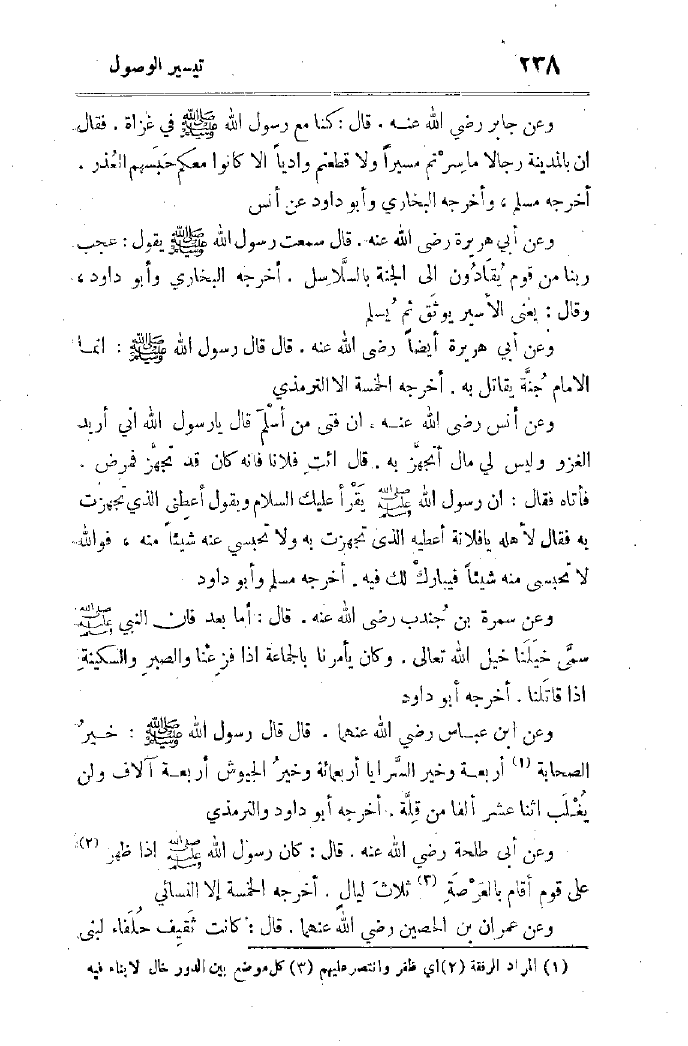 ٢٣٨ تيسير الوصول
وعن جابر رضي الله عنه . قال : كنا مع رسول الله ﷺ في غزاة . فقال
ان بالمدينة رجالا ما سرْتم مسيراً ولا قطعتم وادياً الا كانوا معكم حَبَسهم العُذر .
أخرجه مسلم ، وأخرجه البخاري وأبو داود عن أنس
وعن أبي هريرة رضى الله عنه . قال سمعت رسول الله ﷺ يقول : عجب
ربنا من قوم يُقَادُون الى الجنة بالسَّلاسِل . أخرجه البخاري وأبو داود ،
وقال : يعْنى الأسير يوثَق ثم يُسلم
وعن أبي هريرة أيضاً رضى الله عنه . قال قال رسول الله ﷺ : انمـا
الامام جُنَّة يقاتل به . أخرجه الخمسة الا الترمذي
وعن أنس رضى الله عنـه . ان فتى من أسْلَمَ قال يارسول الله انى أريد
الغزو وليس لي مال أتجهزَّ به . قال ائتِ فلانا فانه كان قد تجهَّز فمرض .
فأتاه فقال : ان رسول الله ﷺ يَقْرأ عليك السلام ويقول أعطِنى الذي تجهزت
به فقال لأهله يافلانة أعطيه الذى تجهزت به ولا تحبسي عنه شيئاً منه ، فوالله
لا تحبسى منه شيئاً فيباركْ لك فيه . أخرجه مسلم وأبو داود
وعن سمرة بن جُندب رضى الله عنه . قال : أما بعد فان النبي ﷺ
سمَّى خَيلَنا خيل الله تعالى . وكان يأمرنا بالجماعة اذا فزِعْنا والصبرِ والسكينةِ
اذا قاتَلنا . أخرجه أبو داود
وعن ابن عبـاس رضي الله عنهما . قال قال رسول الله ﷺ : خـيرُ
الصحابة (١) أربعـة وخير السَّرايا أربعمائة وخيرُ الجيوش أربعـة آلاف ولن
يُغْـلَب اثنا عشر ألفا من قِلَّة . أخرجه أبو داود والترمذي
وعن أبى طلحة رضي الله عنه . قال : كان رسول الله ﷺ اذا ظهر (٢)
على قوم أقام بالعَرْصَةِ (٣) ثلاثَ ليالٍ . أخرجه الخمسة إلا النسائي
وعن عمران بن الحصين رضي الله عنهما . قال : كانت ثَقِيف حُلَفَاء لبنى
(١) المراد الرفقة (٢) اي ظفر وانتصر عليهم (٣) كل موضع بين الدور خال لا بناء فيه